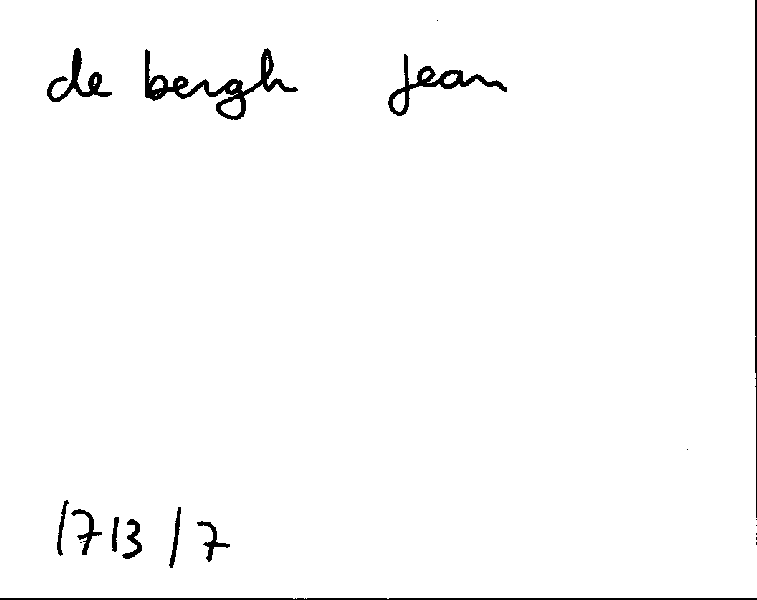 de bergh jean
1713 / 7